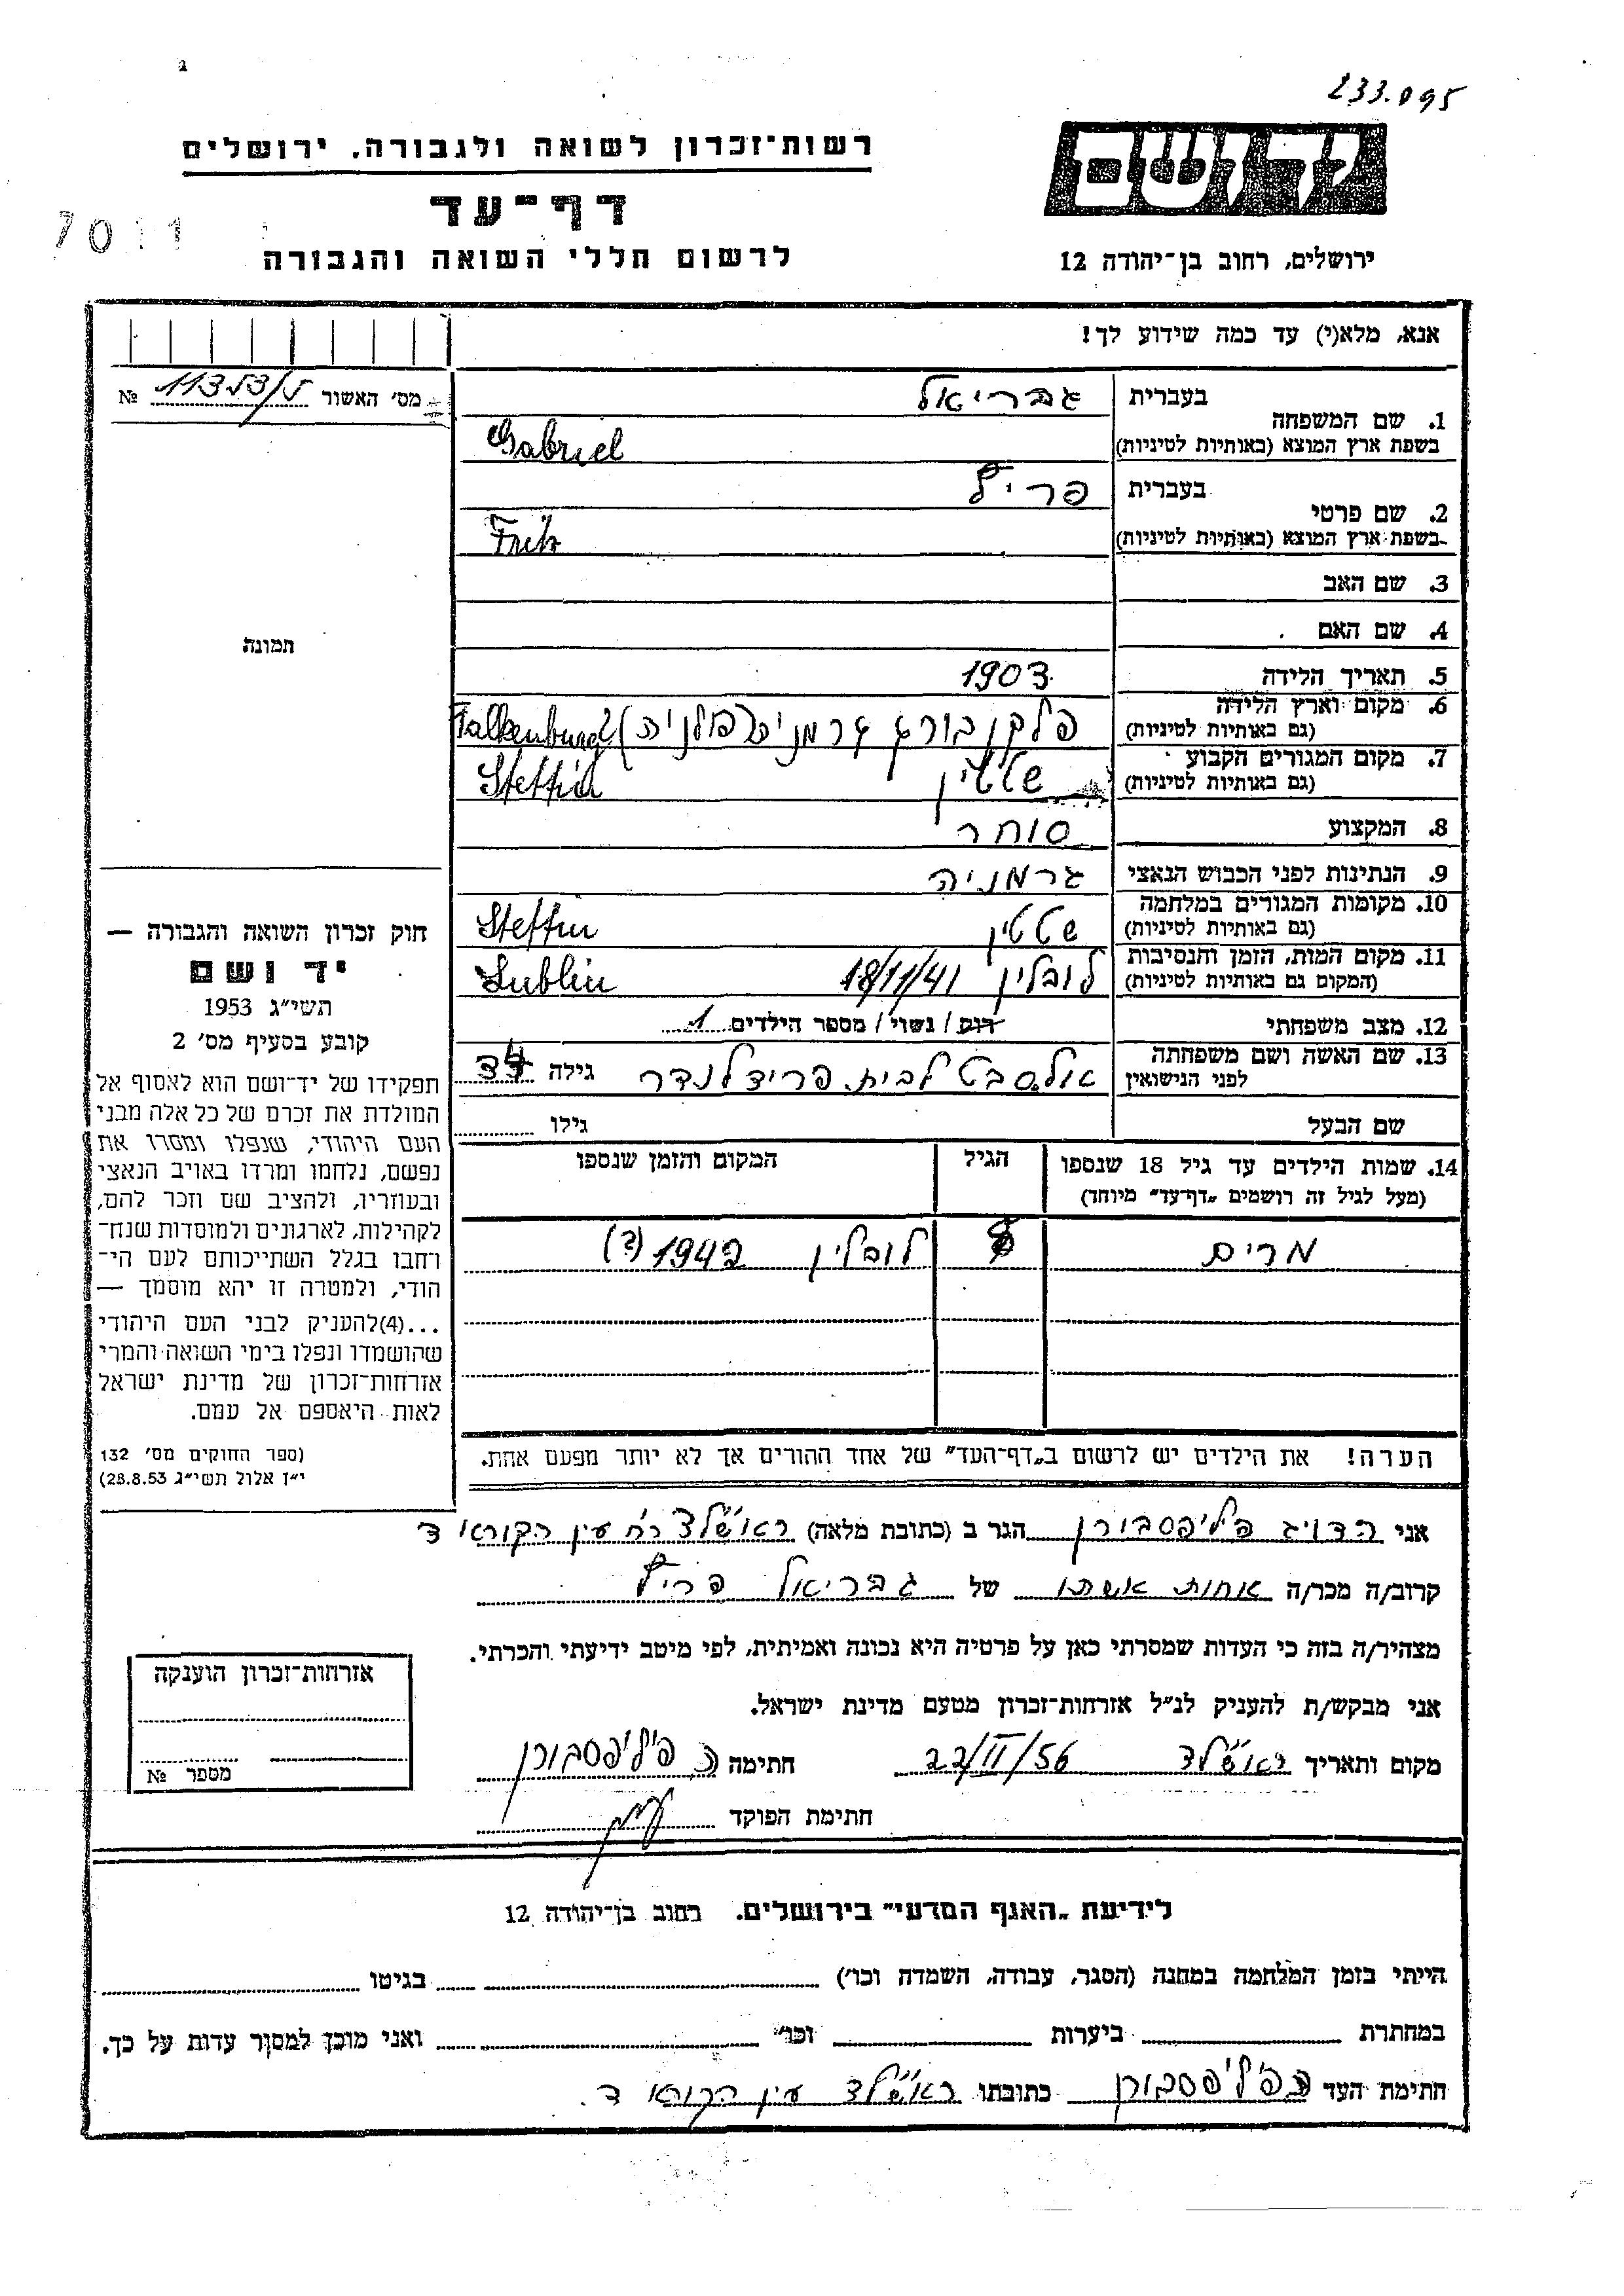 233.095
ידושם
רשות־זכרון לשואה ולגבורה. ירושלים
דף־עד
7011
לרשום חללי השואה והגבורה
ירושלים, רחוב בן־יהודה 12
אנא, מלא(י) עד כמה שידוע לך!
מס׳ האשור 11353/ № 
1. שם המשפחה
בעברית גבריאל
בשפת ארץ המוצא (באותיות לטיניות) Gabriel
2. שם פרטי
בעברית פריץ
בשפת ארץ המוצא (באותיות לטיניות) Fritz
3. שם האב
4. שם האם
5. תאריך הלידה 1903
6. מקום וארץ הלידה
(גם באותיות לטיניות) פלקנבורג גרמניה (פולניה) Falkenburg
7. מקום המגורים הקבוע
(גם באותיות לטיניות) שטטין Stettin
8. המקצוע סוחר
9. הנתינות לפני הכבוש הנאצי גרמניה
10. מקומות המגורים במלחמה
(גם באותיות לטיניות) שטטין Stettin
11. מקום המות, הזמן והנסיבות
(המקום גם באותיות לטיניות) לובלין 18/11/41 Lublin
12. מצב משפחתי רוק / נשוי / מספר הילדים 1
13. שם האשה ושם משפחתה
לפני הנישואין לבית פרידלנדר גילה
שם הבעל גילו
14. שמות הילדים עד גיל 18 שנספו
(מעל לגיל זה רושמים „דף־עד״ מיוחד)
הגיל
המקום והזמן שנספו
מרים לובלין 1942 (?)
הערה! את הילדים יש לרשום ב„דף־העד״ של אחד ההורים אך לא יותר מפעם אחת.
תמונה
חוק זכרון השואה והגבורה —
יד ושם
תשי״ג 1953
קובע בסעיף מס׳ 2
תפקידו של יד־ושם הוא לאסוף אל
המולדת את זכרם של כל אלה מבני
העם היהודי, שנפלו ומסרו את
נפשם, נלחמו ומרדו באויב הנאצי
ובעוזריו, ולהציב שם וזכר להם,
לקהילות, לארגונים ולמוסדות שנח־
רחבו בגלל השתייכותם לעם הי־
הודי, ולמטרה זו יהא מוסמך —
...(4)להעניק לבני העם היהודי
שהושמדו ונפלו בימי השואה והמרי
אזרחות־זכרון של מדינת ישראל
לאות היאספם אל עמם.
(ספר החוקים מס׳ 132
י״ז אלול תשי״ג 28.8.53)
אני הדויג פיליפסבורן הגר ב (כתובת מלאה) ראשל״צ רח׳ עין הקורא ד
קרוב/ה מכר/ה אחות אשתו של גבריאל פריץ
מצהיר/ה בזה כי העדות שמסרתי כאן על פרטיה היא נכונה ואמיתית, לפי מיטב ידיעתי והכרתי.
אני מבקש/ת להעניק לנ״ל אזרחות־זכרון מטעם מדינת ישראל.
מקום ותאריך ראשל״צ 22/II/56 חתימה ה פיליפסבורן
חתימת הפוקד
אזרחות־זכרון הוענקה
מספר №
לידיעת „האגף המדעי״ בירושלים. רחוב בן־יהודה 12
הייתי בזמן המלחמה במחנה (הסגר, עבודה, השמדה וכו׳) בגיטו
במחתרת ביערות וכו׳ ואני מוכן למסור עדות על כך.
חתימת העד ה פיליפסבורן כתובתו ראשל״צ עין הקורא ד.